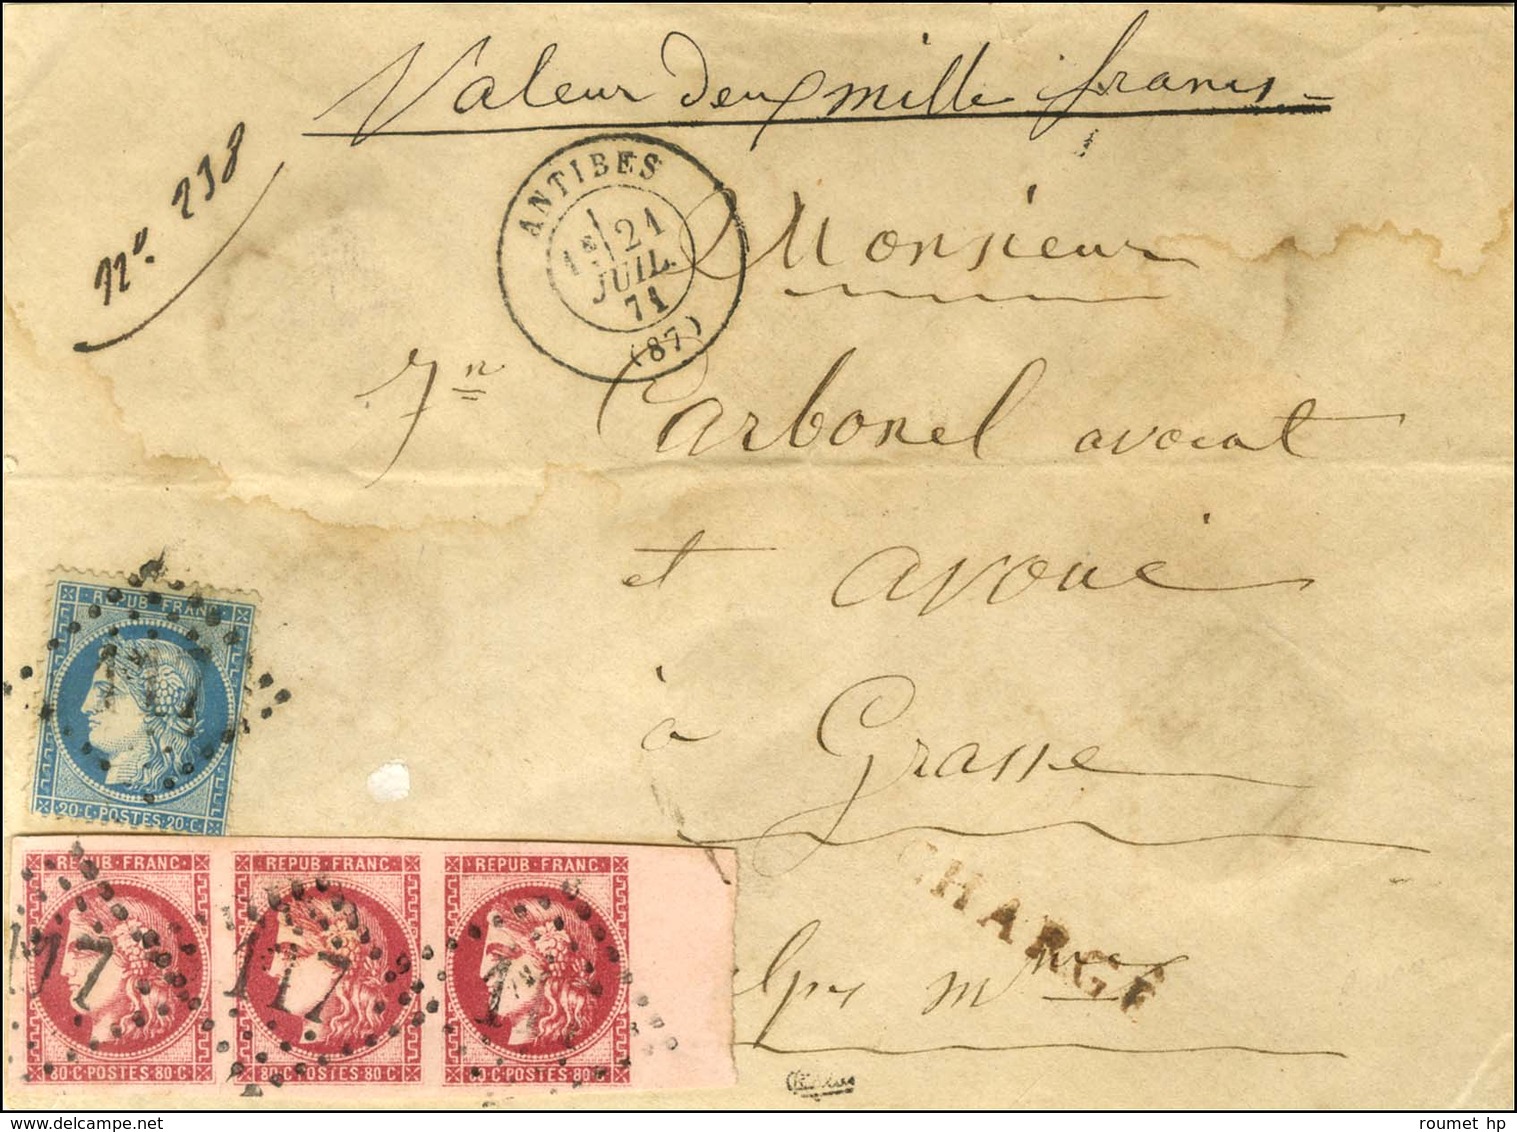 Valeur deux mille francs
N° 238
ANTIBES
1E 21
JUIL.
71
(87)
Monsieur
Jn Carbonel avocat
et avoué
à Grasse
Alpes mmes
CHARGÉ
REPUB·FRANC
117
20·C·POSTES·20·C
REPUB·FRANC
117
80·C·POSTES·80·C
REPUB·FRANC
117
80·C·POSTES·80·C
REPUB·FRANC
80·C·POSTES·80·C
roumet hp